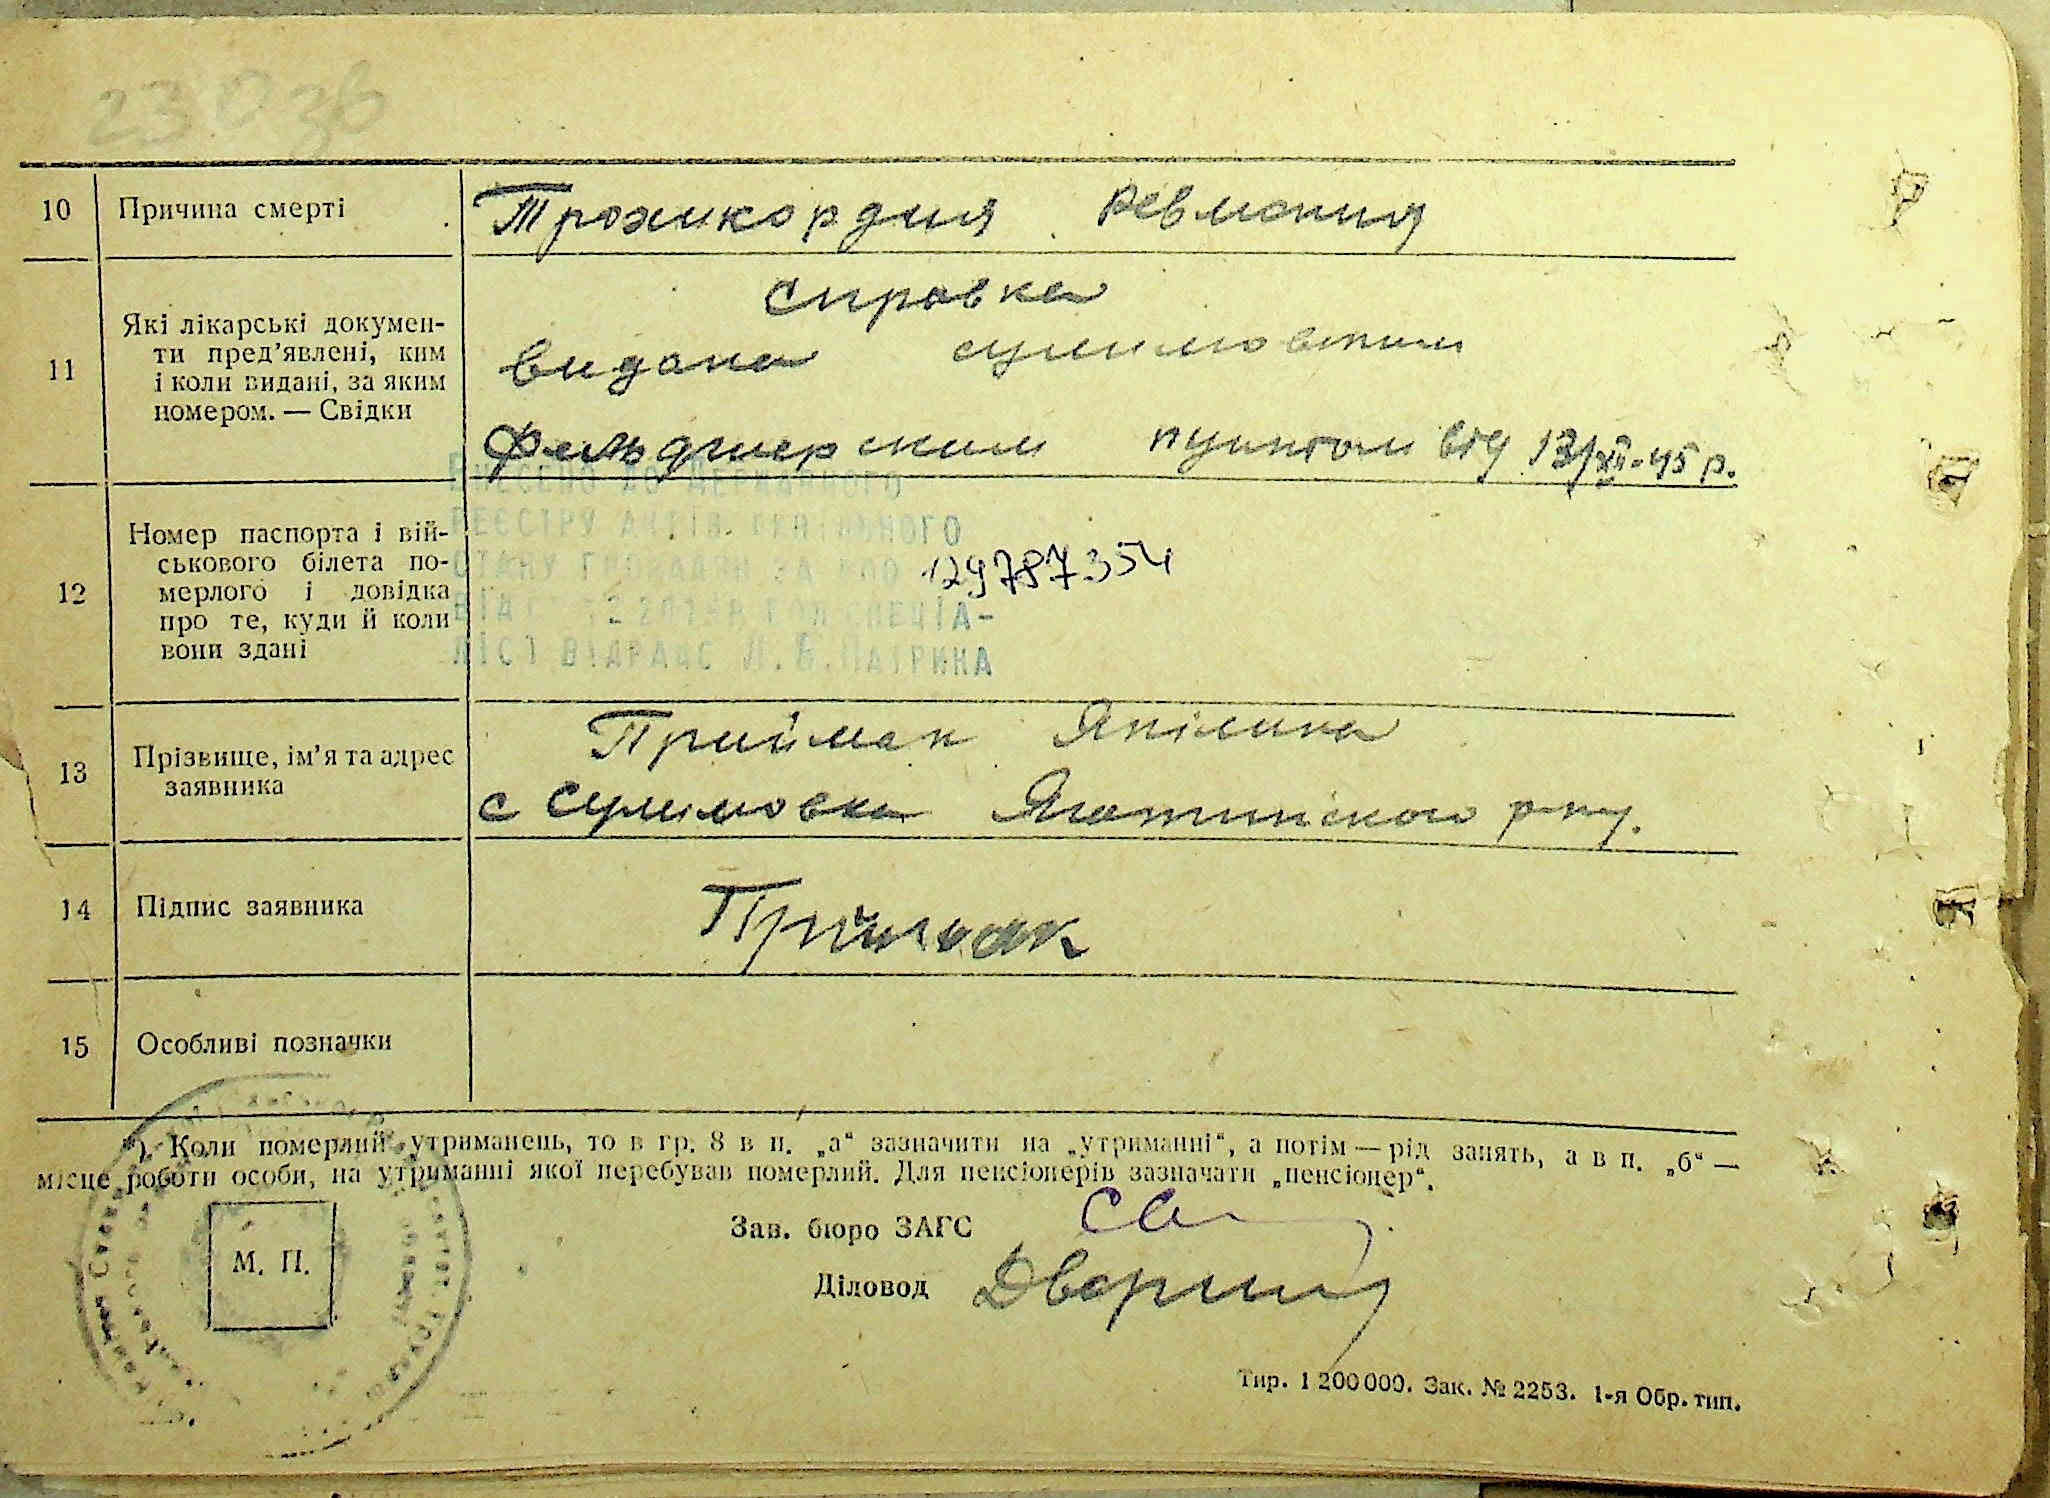 10 Причина смерті
Ревмокит
11 Які лікарські докумен-
ти пред’явлені, ким
і коли видані, за яким
номером. — Свідки
Справка
видана сулимовским
Фельдшерским пунктом від 13/XII-45 р.
ВНЕСЕНО ДО ДЕРЖАВНОГО
РЕЄСТРУ АКТІВ ЦИВІЛЬНОГО
СТАНУ ГРОМАДЯН ЗА 129787354
СПЕЦІА-
ЛІСТ ВІДРАЦС Л.В.ПАТРИКА
12 Номер паспорта і вій-
ськового білета по-
мерлого і довідка
про те, куди й коли
вони здані
13 Прізвище, ім’я та адрес
заявника
Приймак Якілина
с Сулимовка Яготинского р-ну.
14 Підпис заявника
Приймак
15 Особливі позначки
*). Коли померлий утриманець, то в гр. 8 в п. „а“ зазначити на „утриманні“, а потім — рід занять, а в п. „б“ —
місце роботи особи, на утриманні якої перебував померлий. Для пенсіонерів зазначати „пенсіонер“.
Зав. бюро ЗАГС
М. П.
Діловод
Тир. 1 200 000. Зак. № 2253. 1-я Обр. тип.